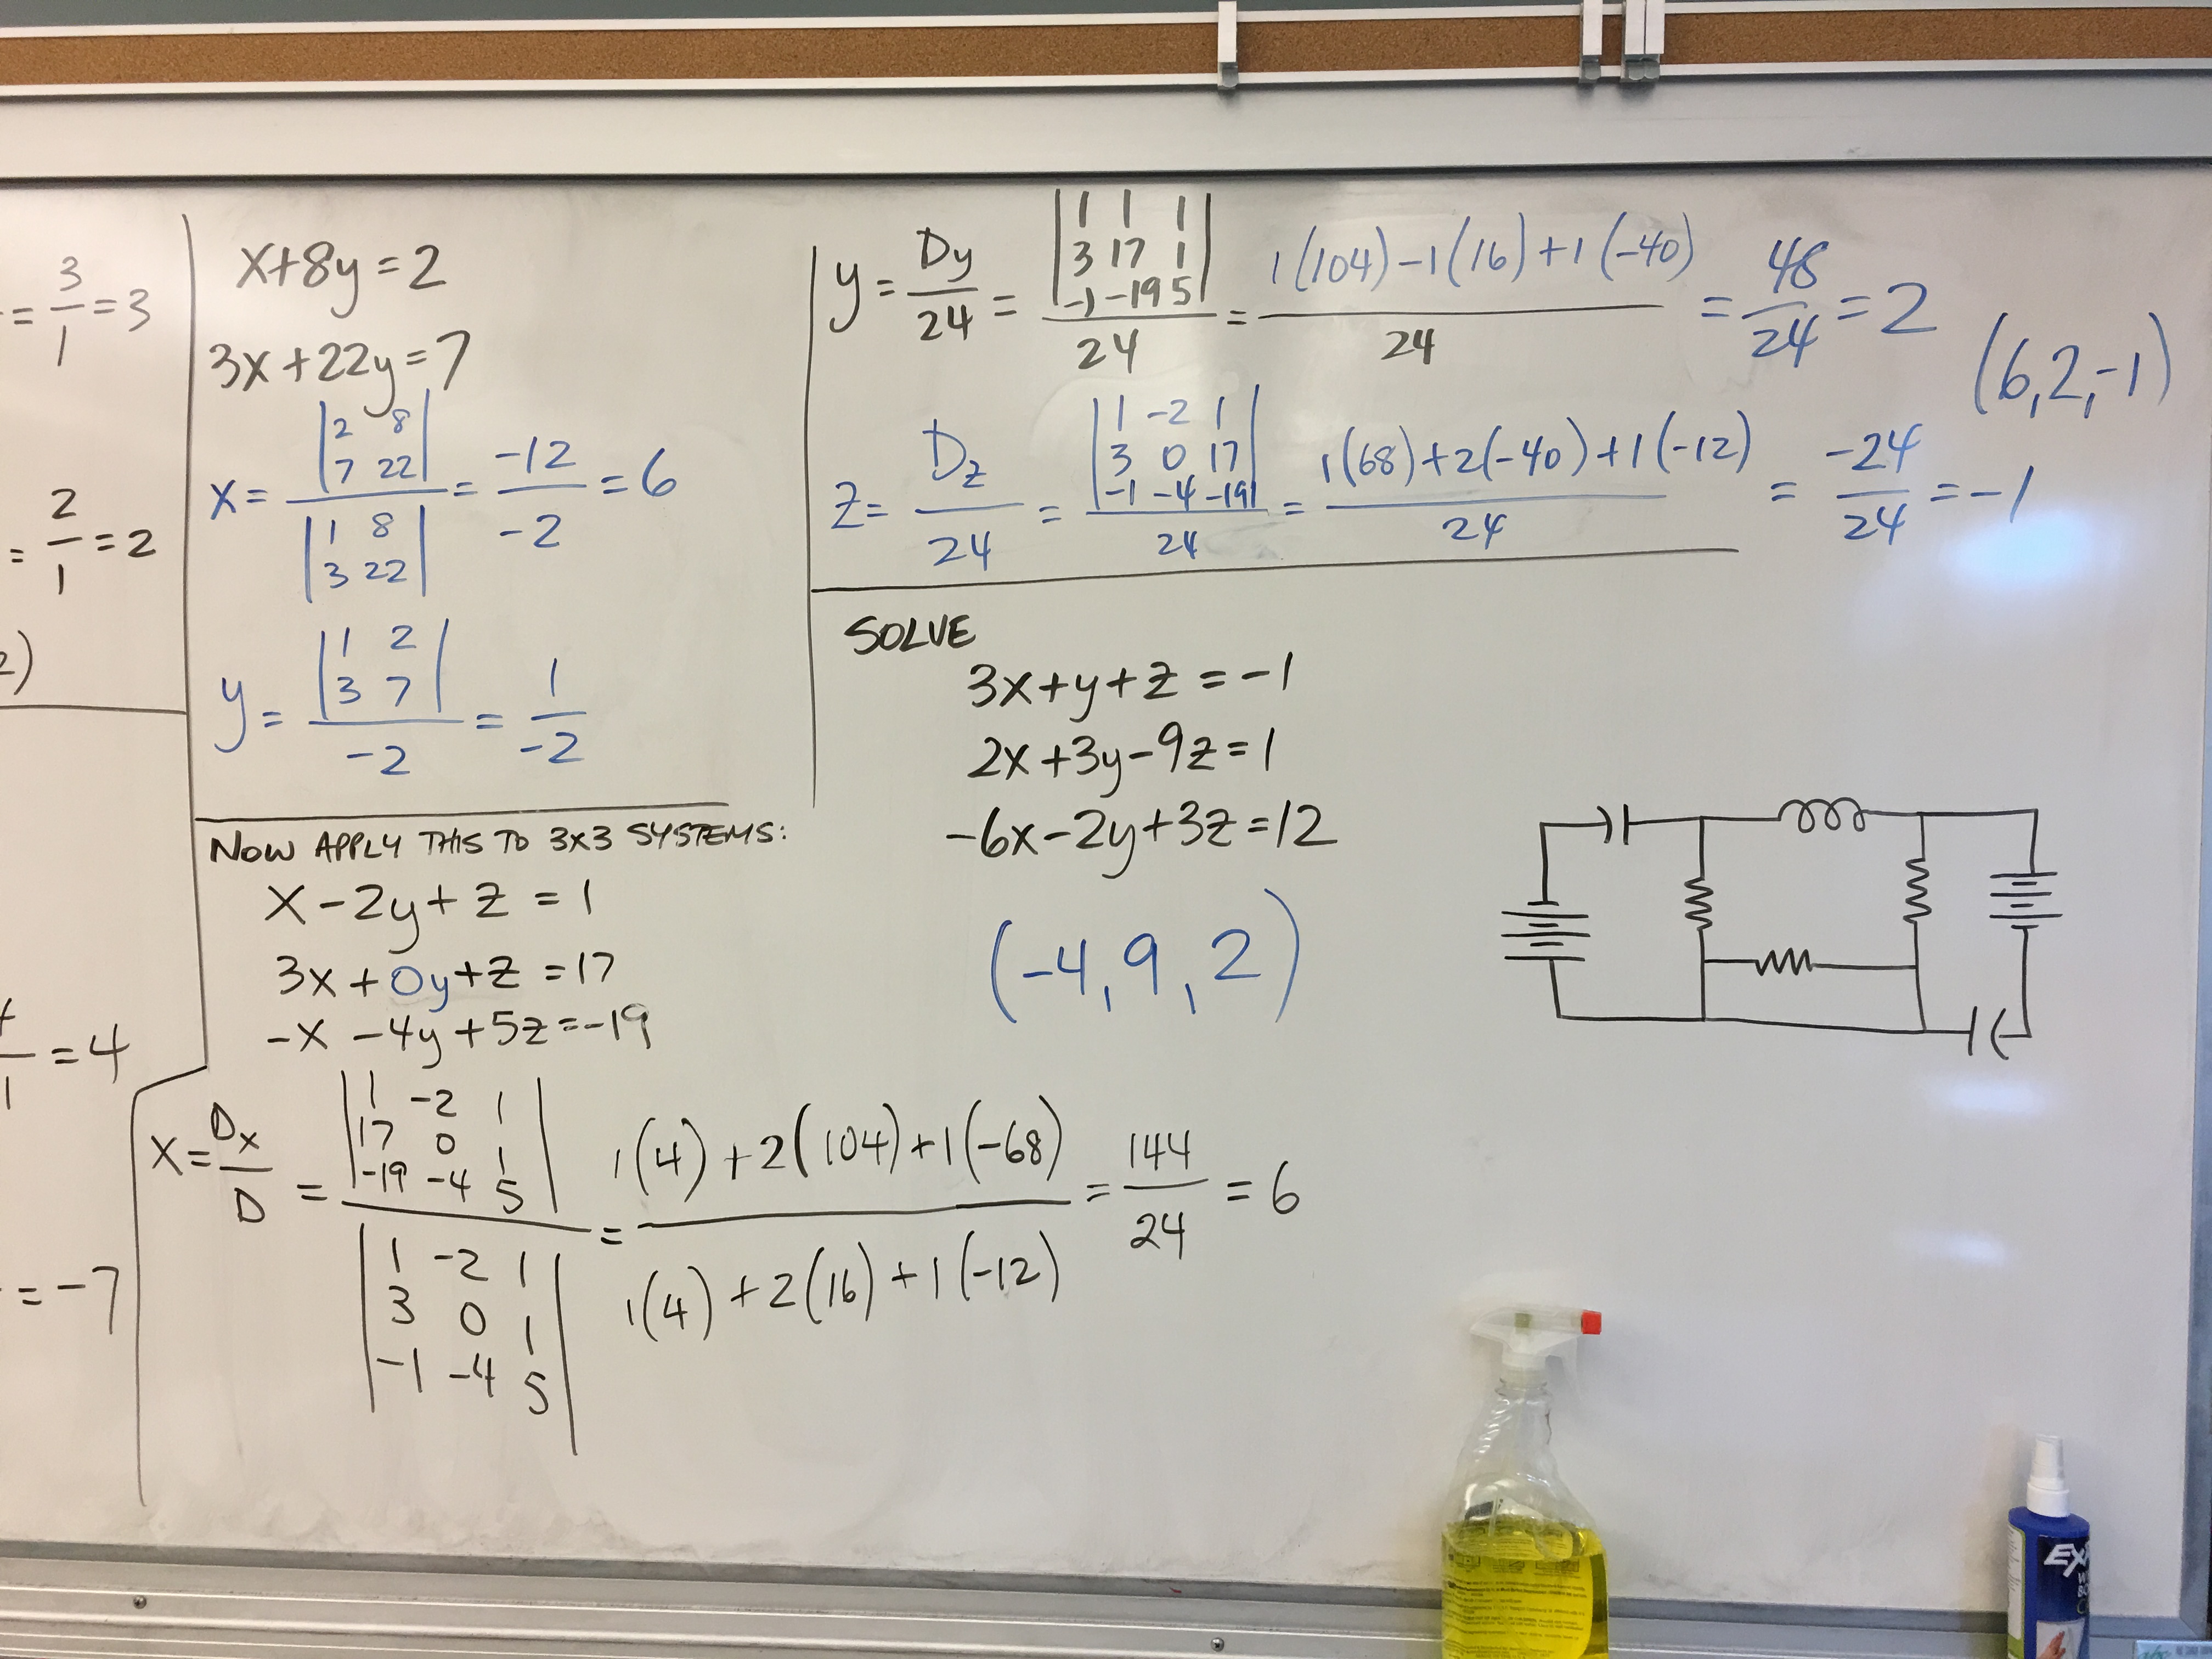 = 3/1 = 3
= 2/1 = 2
2)
= 4
1
= -7
x+8y=2
3x+22y=7
x = |2 8; 7 22| / |1 8; 3 22| = -12/-2 = 6
y = |1 2; 3 7| / -2 = 1/-2
NOW APPLY THIS TO 3x3 SYSTEMS:
x-2y+z=1
3x+0y+z=17
-x-4y+5z=-19
x = Dx/D = |1 -2 1; 17 0 1; -19 -4 5| / |1 -2 1; 3 0 1; -1 -4 5| = 1(4)+2(104)+1(-68) / 1(4)+2(16)+1(-12) = 144/24 = 6
y = Dy/24 = |1 1 1; 3 17 1; -1 -19 5| / 24 = 1(104)-1(16)+1(-40) / 24 = 48/24 = 2
z = Dz/24 = |1 -2 1; 3 0 17; -1 -4 -19| / 24 = 1(68)+2(-40)+1(-12) / 24 = -24/24 = -1
(6,2,-1)
SOLVE
3x+y+z=-1
2x+3y-9z=1
-6x-2y+3z=12
(-4,9,2)